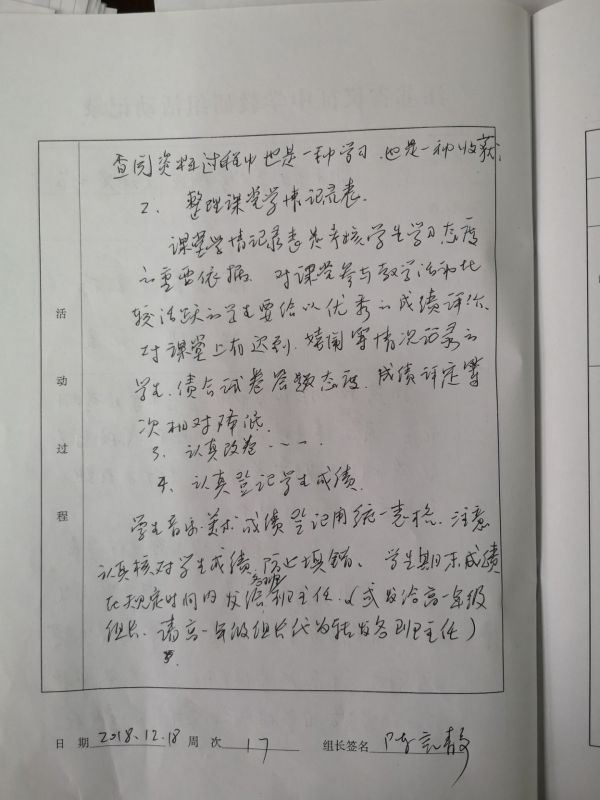 查阅资料过程中也是一种学习,也是一种收获.
2、整理课堂学情记录表.
课堂学情记录表是考核学生学习态度
的重要依据. 对课堂参与教学活动比
较活跃的学生要给以优秀的成绩评价.
对课堂上有迟到、嬉闹等情况记录的
学生,结合试卷答题态度,成绩评定等
次相对降低.
3、认真改卷…….
4、认真登记学生成绩.
学生音乐.美术成绩登记用统一表格.注意
认真核对学生成绩,防止填错. 学生期末成绩
在规定时间内发给各班班主任.(或发给高一年级
组长.请高一年级组长代为转发各班主任)
等.
活动过程
日 期 2018.12.18 周 次 17 组长签名